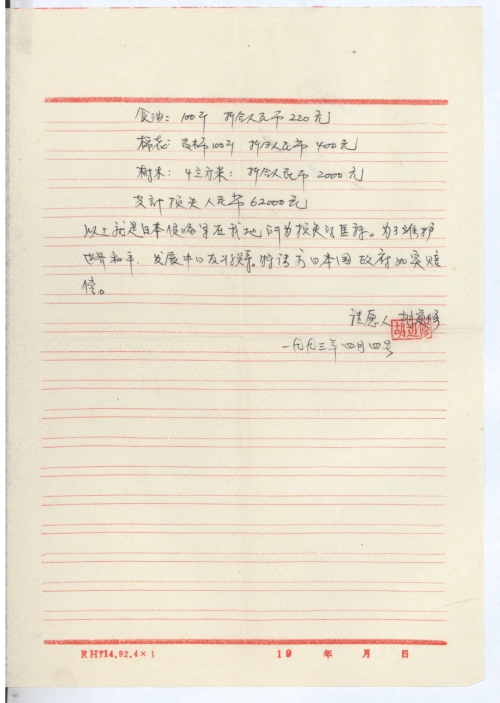 食油：100斤 折合人民币220元
棉花：皮棉100斤 折合人民币 400元
树木：4立方米：折合人民币 2000元
共计损失人民币 62000元
以上就是日本侵略军在我地所为损失的 。为了维护
世界和平，发展中日友好 。特请 日本国政府如实赔
偿。
请愿人 胡 修
胡 修
一九九三年四月四号
RH714.92.4×1 19 年 月 日